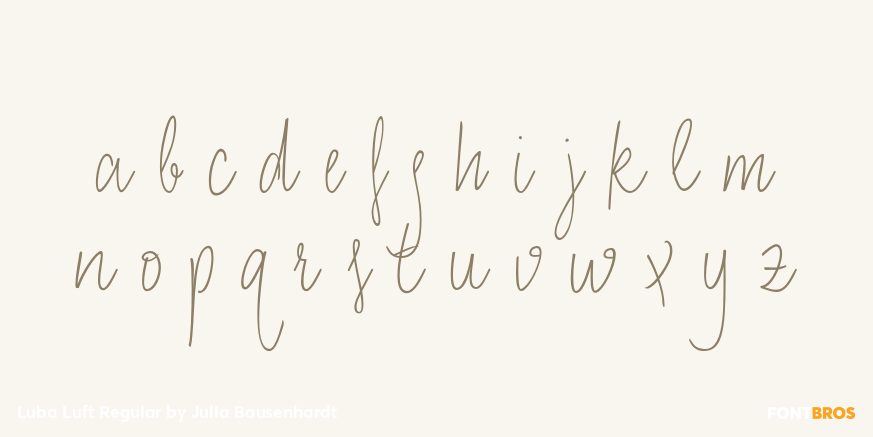 a b c d e f g h i j k l m
n o p q r s t u v w x y z
Luba Luft Regular by Julia Bausenhardt
FONTBROS